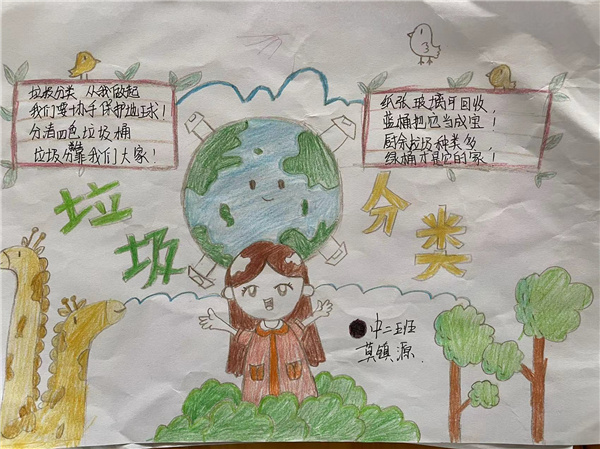 垃圾分类 从我做起
我们要协手保护地球！
分清四色垃圾桶
垃圾分类靠我们大家！
纸张玻璃可回收
蓝桶把它当成宝！
厨余垃圾种类多，
绿桶才是它的家！
垃圾
分类
中二班
莫镇源